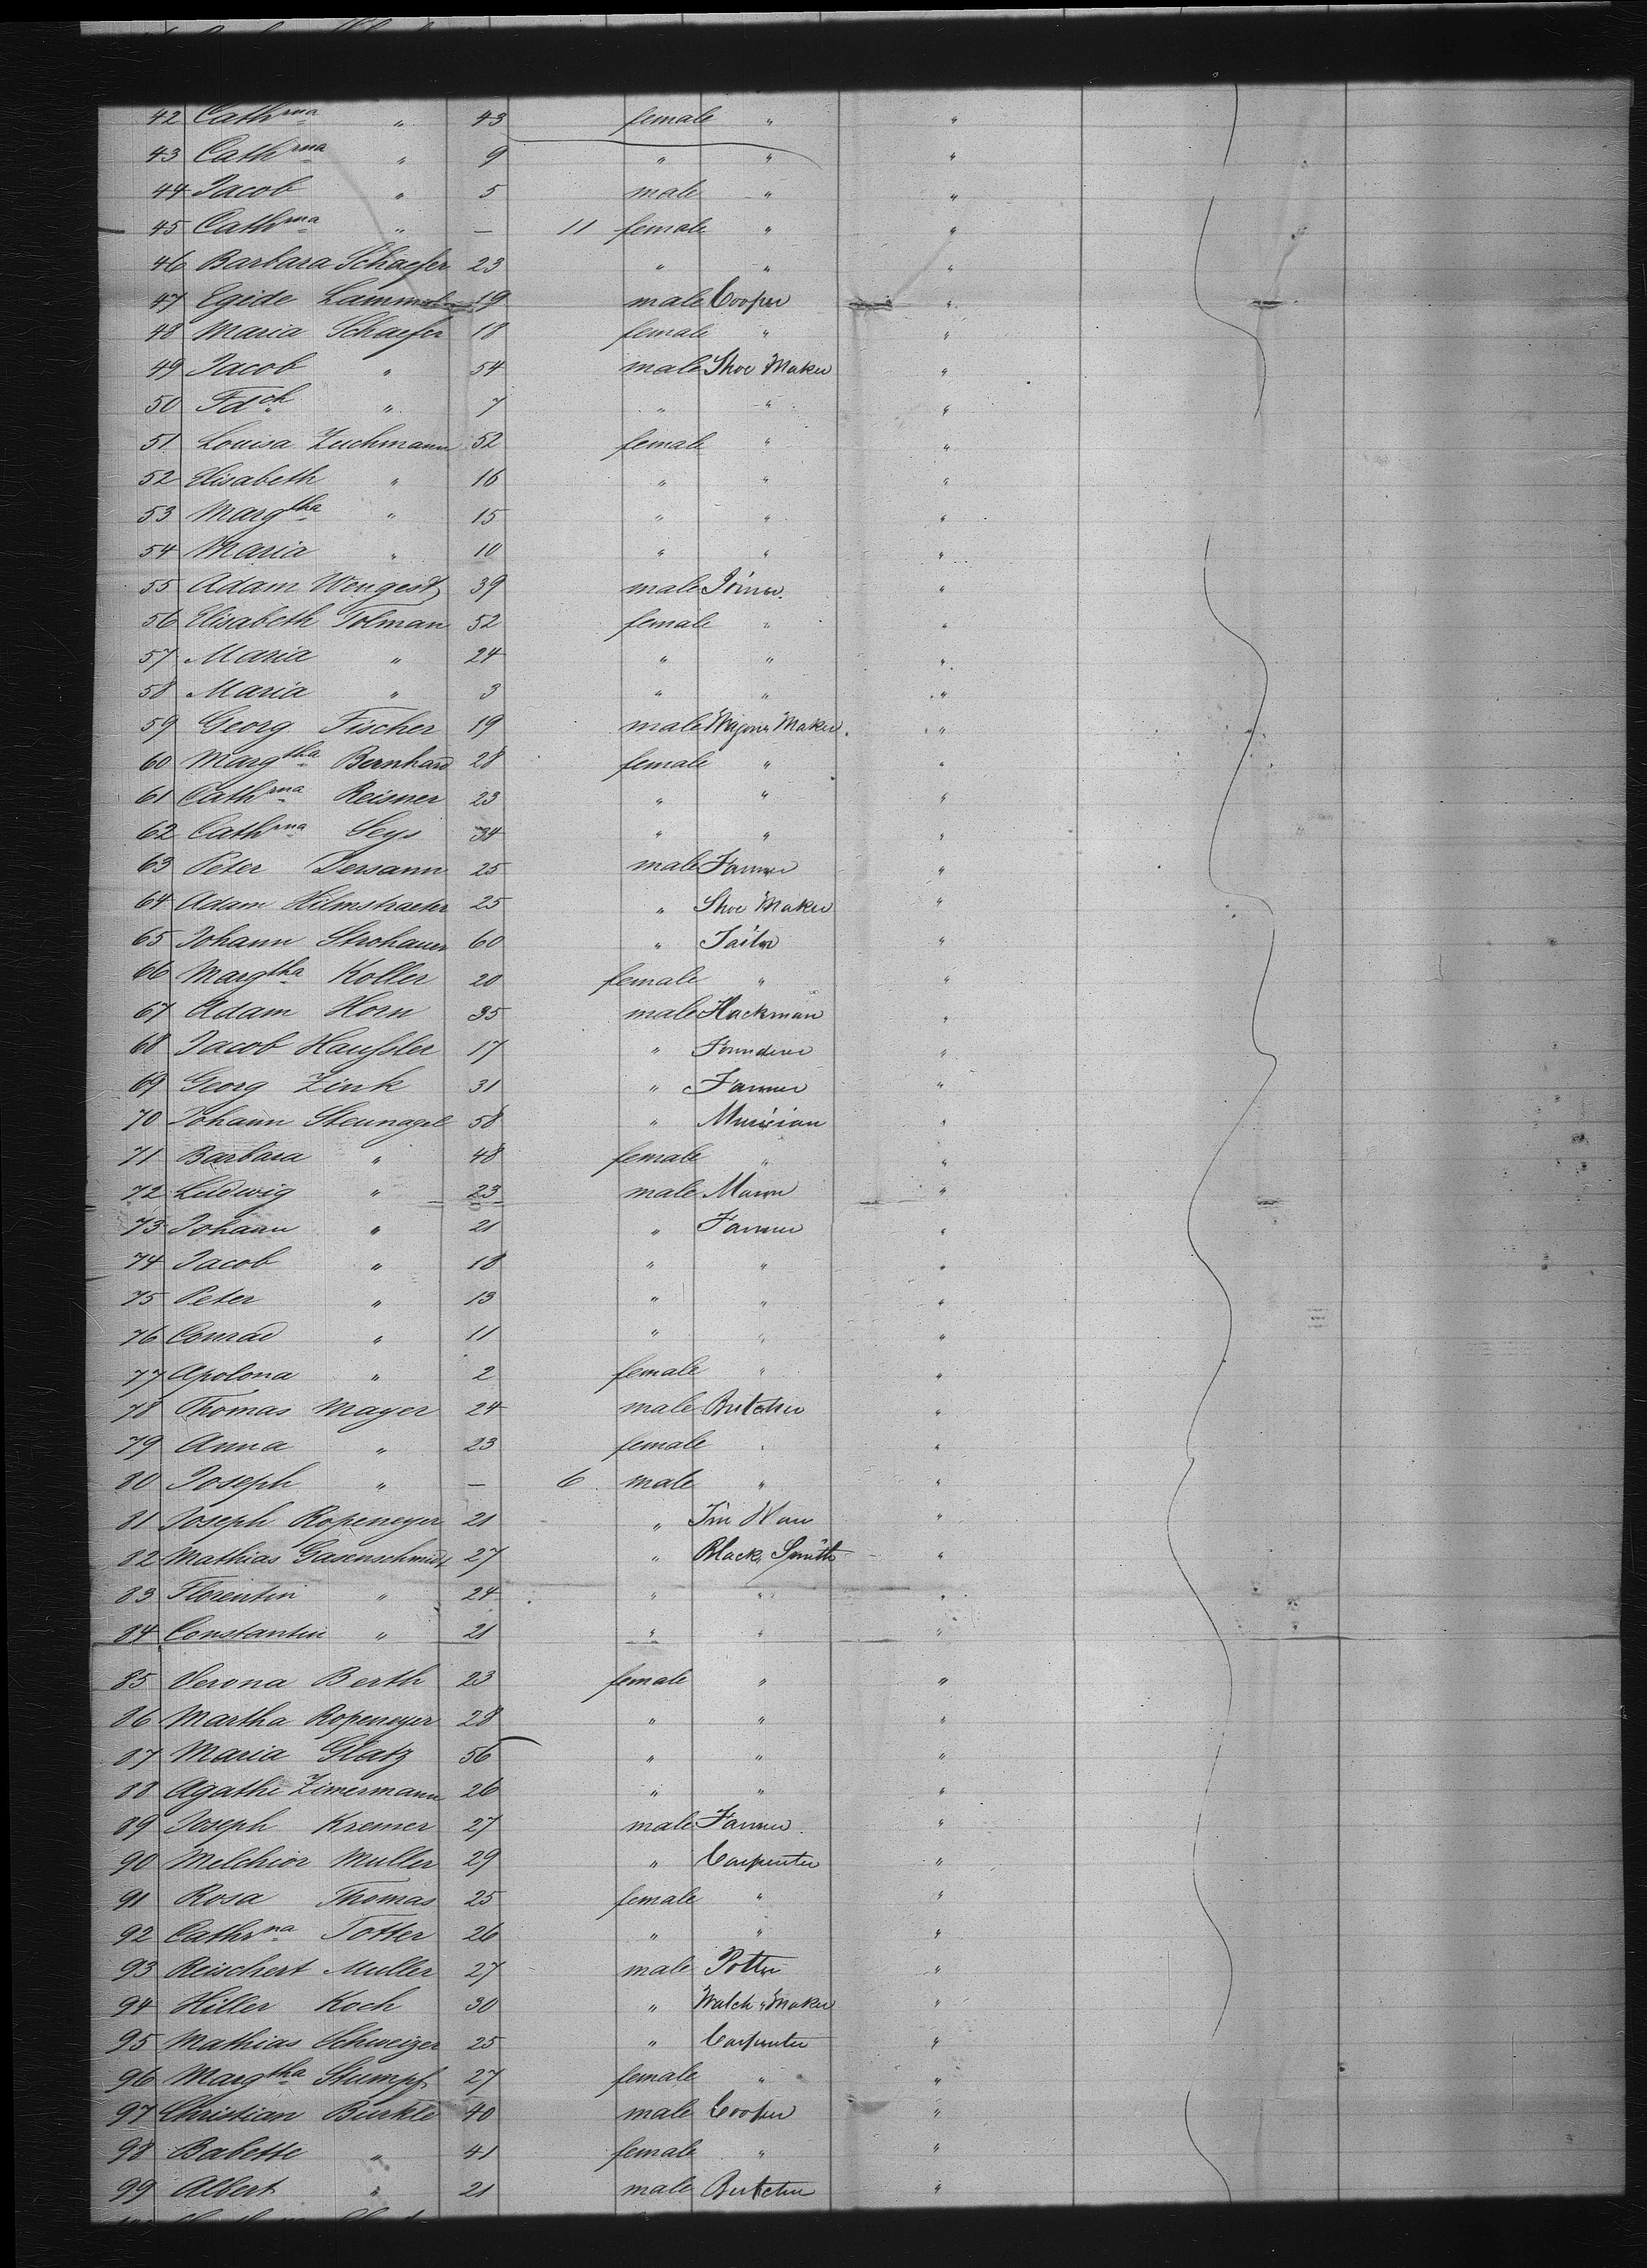 42 Cathrna " 43 female " "
43 Cathrna " 9 " " "
44 Jacob " 5 male " "
45 Cathrna " — 11 female " "
46 Barbara Schaefer 23 " " "
47 Egide 19 male Cooper "
48 Maria Schaefer 18 female " "
49 Jacob " 54 male Shoe Maker "
50 Fdch " 7 " " "
51 Louisa Zuchmann 52 female " "
52 Elisabeth " 16 " " "
53 Margtha " 15 " " "
54 Maria " 10 " " "
55 Adam 39 male Joiner "
56 Elisabeth Tolman 52 female " "
57 Maria " 24 " " "
58 Maria " 3 " " "
59 Georg Fischer 19 male Wagon Maker "
60 Margtha Bernhard 28 female " "
61 Cathrna Reisner 23 " " "
62 Cathrna 34 " " "
63 Peter Dersann 25 male Farmer "
64 Adam 25 " Shoe Maker "
65 Johann Strohauer 60 " Tailor "
66 Margtha Koller 20 female " "
67 Adam Horn 35 male Hackman "
68 Jacob Haussler 17 " Founderer "
69 Georg Zink 31 " Farmer "
70 Johann Steunagel 58 " Musician "
71 Barbara " 48 female " "
72 Ludwig " 23 male Mason "
73 Johann " 21 " Farmer "
74 Jacob " 18 " " "
75 Peter " 13 " " "
76 Conrad " 11 " " "
77 Apolona " 2 female " "
78 Thomas Mayer 24 male Butcher "
79 Anna " 23 female " "
80 Joseph " — 6 male " "
81 Joseph Ropeneyer 21 " "
82 Mathias Gasenschmidt 27 " Black Smith "
83 Florentin " 24 " " "
84 Constantin " 21 " " "
85 Verona Berth 23 female " "
86 Martha Ropeneyer 28 " " "
87 Maria Glatz 56 " " "
88 Agathe Zimermann 26 " " "
89 Joseph Kremer 27 male Farmer "
90 Melchior Muller 29 " Carpenter "
91 Rosa Thomas 25 female " "
92 Cathrna Totter 26 " " "
93 Reischert Muller 27 male Potter "
94 Hiller Koch 30 " Watch Maker "
95 Mathias Schweizer 25 " Carpenter "
96 Margtha Stumpf 27 female " "
97 Christian Burkle 40 male Cooper "
98 Babette " 41 female " "
99 Albert " 21 male Butcher "